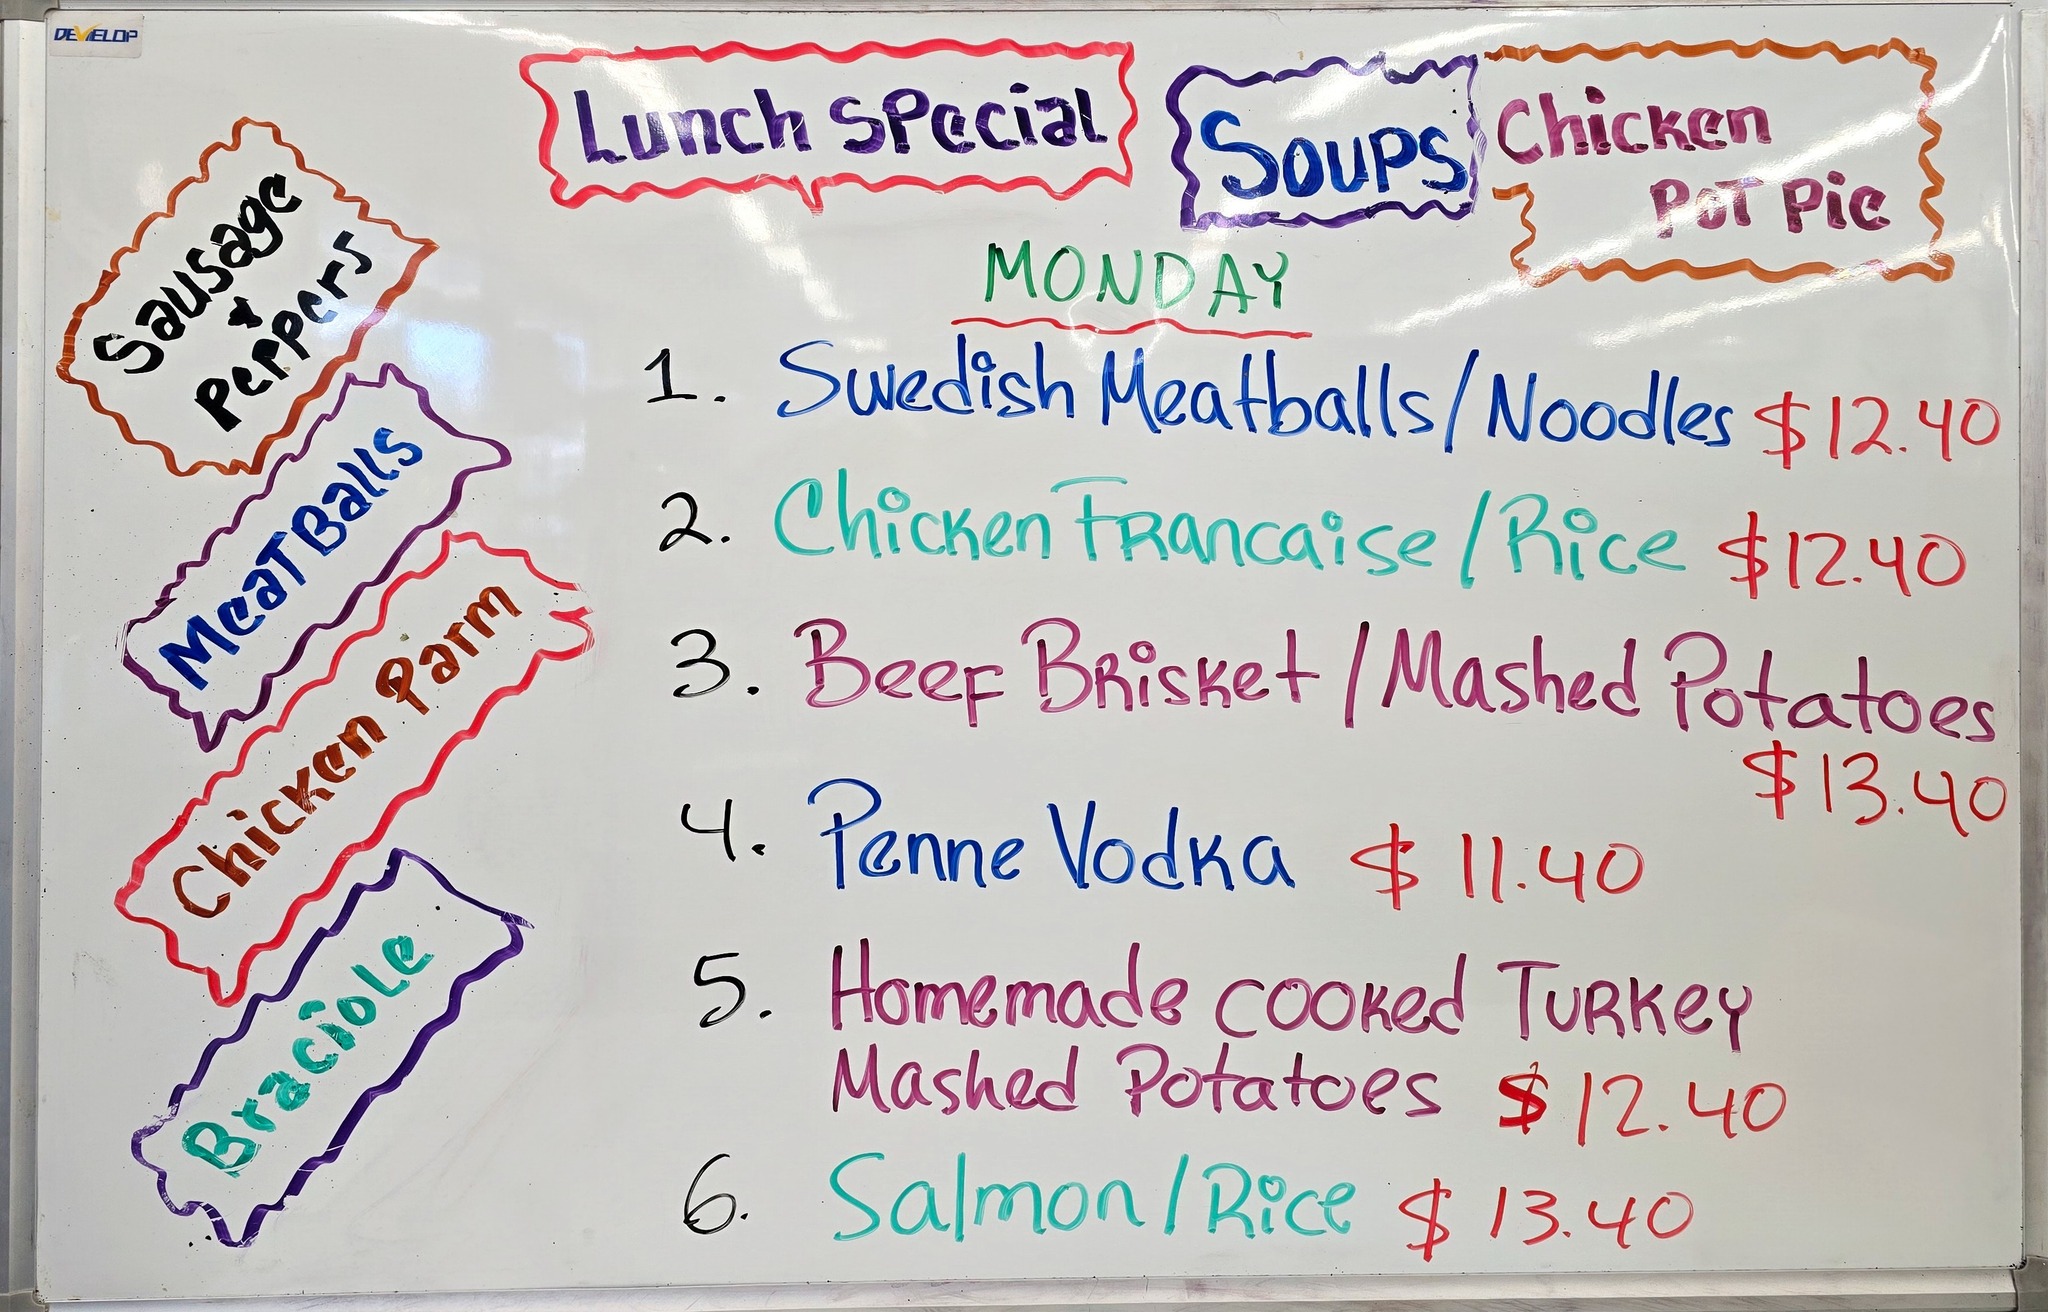 DEVELOP
Lunch Special
Soups
Chicken
Pot Pie
Sausage
+
Peppers
MeatBalls
Chicken Parm
Braciole
MONDAY
1. Swedish Meatballs/Noodles $12.40
2. Chicken Francaise/Rice $12.40
3. Beef Brisket/Mashed Potatoes
$13.40
4. Penne Vodka $11.40
5. Homemade cooked Turkey
Mashed Potatoes $12.40
6. Salmon/Rice $13.40